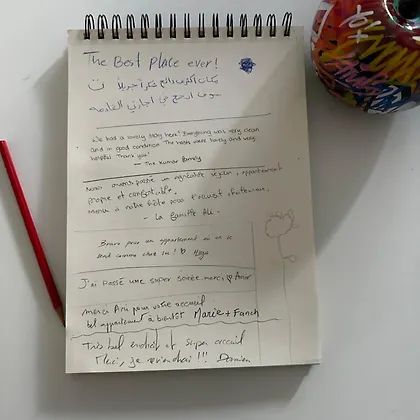 The Best Place ever!
مكان أكثر من رائع شكرا جزيلا
سوف ارجع في اجازتي القادمة
We had a lovely stay here! Everything was very clean
and in good condition. The hosts were lovely and very
helpful. Thank you!
- The Kumar family
Nous avons passé un agréable séjour, appartement
propre et confortable.
Merci à notre hôte pour l'accueil chaleureux.
- La famille Ali -
Bravo pour un appartement où on se
sent comme chez soi!
J'ai passé une super soirée merci ♡
merci pour votre accueil
bel appartement à bientôt Marie + Fanch
Très bel endroit et super accueil
Merci, je reviendrai !!! Damien